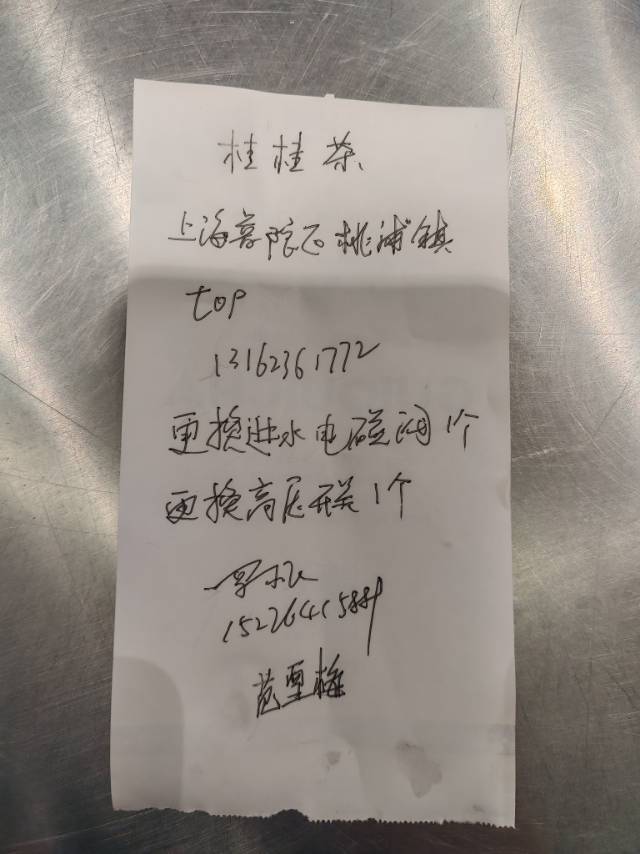 桂桂茶
上海普陀区桃浦镇
top
13162361772
更换进水电磁阀1个
更换高压开关1个
1522641588